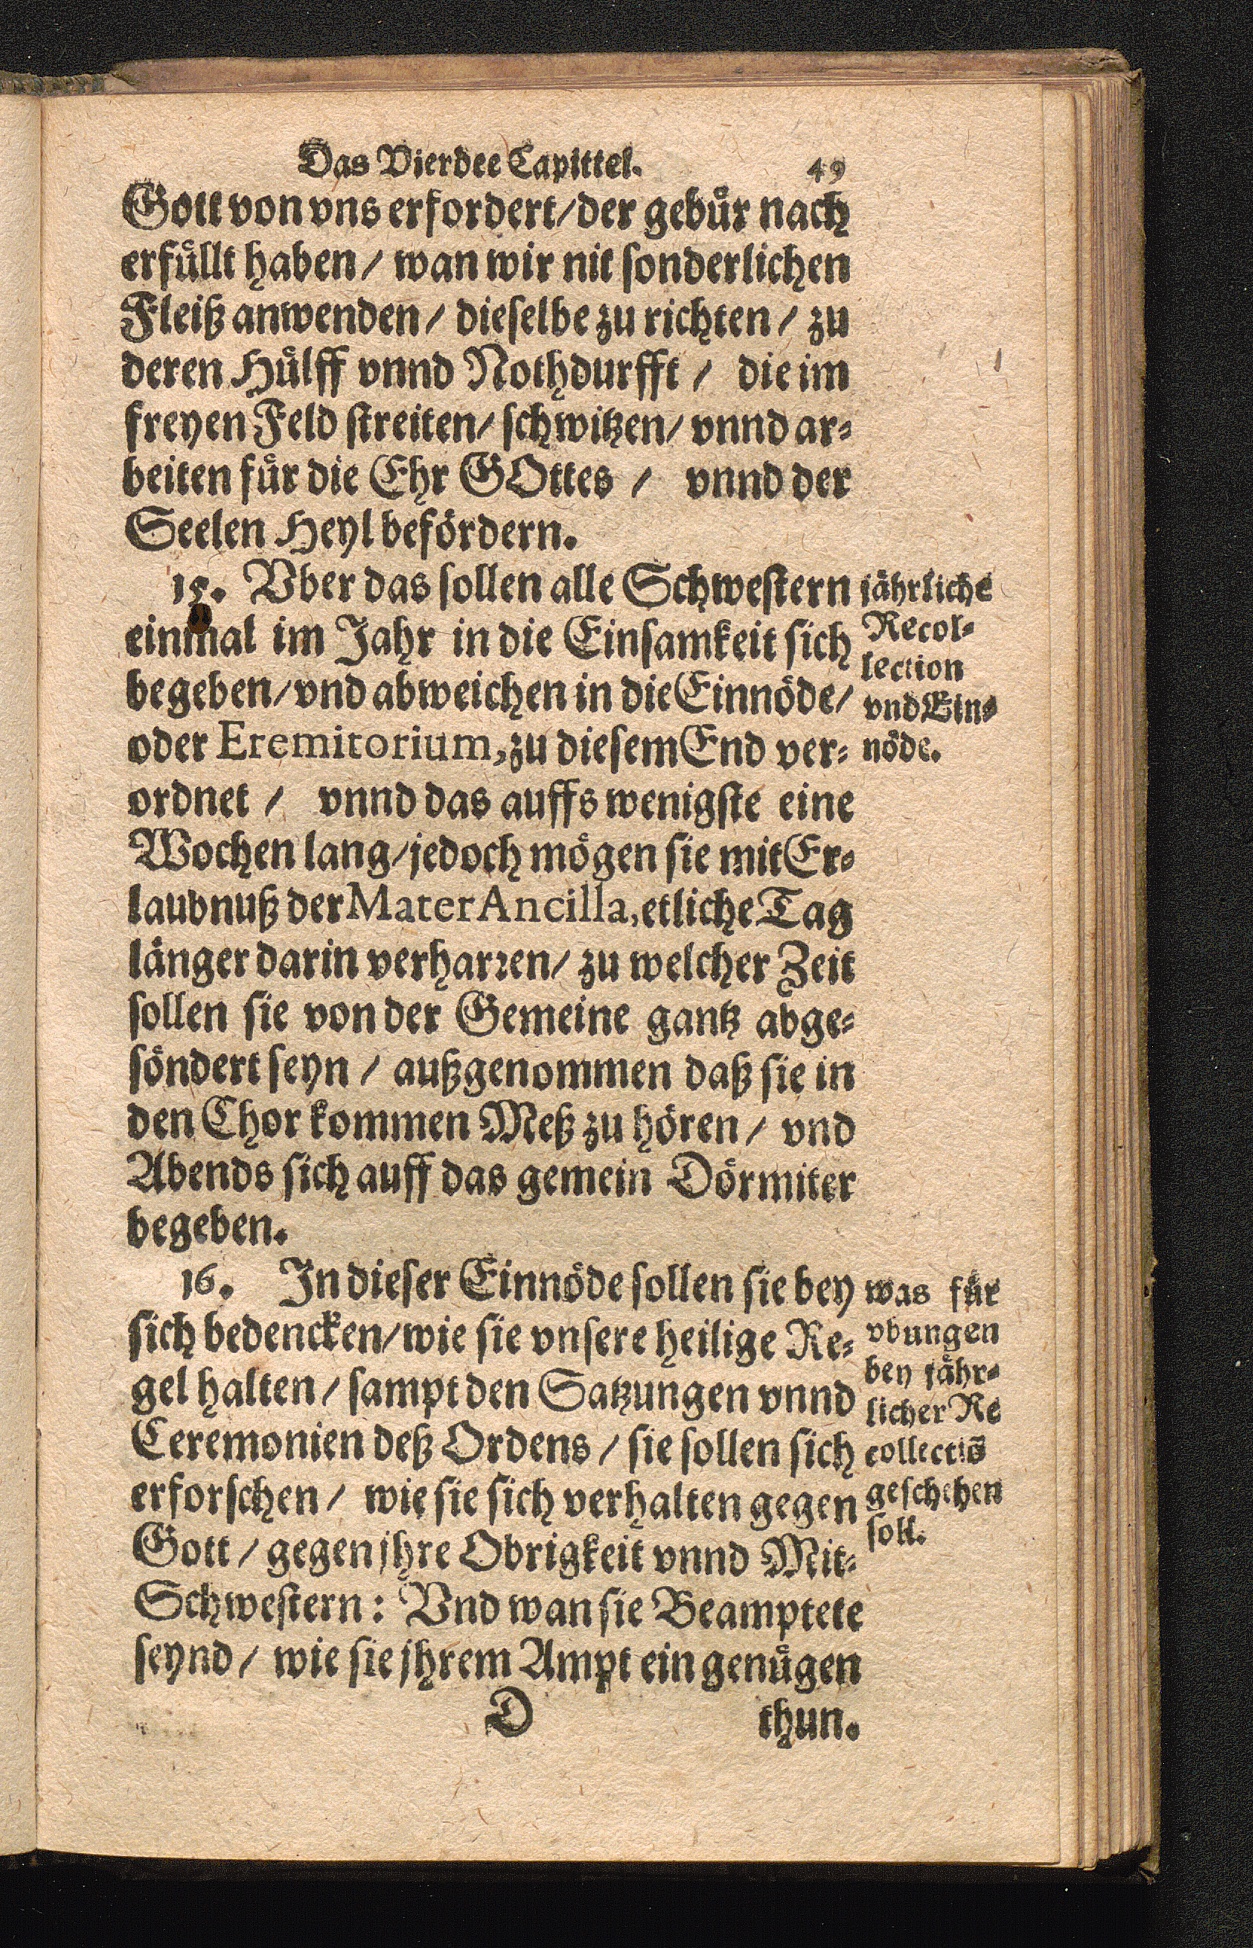 Das Vierdee Capittel. 49
Gott von vns erfordert/der gebuͤr nach
erfuͤllt haben/ wan wir nit sonderlichen
Fleiß anwenden/ dieselbe zu richten/ zu
deren Huͤlff vnnd Nothdurfft/ die im
freyen Feld streiten/ schwitzen/ vnnd ar-
beiten fuͤr die Ehr GOttes/ vnnd der
Seelen Heyl befoͤrdern.
15. Vber das sollen alle Schwestern
einmal im Jahr in die Einsamkeit sich
begeben/vnd abweichen in die Einnoͤde/
oder Eremitorium, zu diesem End ver-
ordnet/ vnnd das auffs wenigste eine
Wochen lang/jedoch moͤgen sie mit Er-
laubnuß der Mater Ancilla, etliche Tag
laͤnger darin verharren/ zu welcher Zeit
sollen sie von der Gemeine gantz abge-
soͤndert seyn/ außgenommen daß sie in
den Chor kommen Meß zu hoͤren/ vnd
Abends sich auff das gemein Doͤrmiter
begeben.
jaͤhrliche
Recol-
lection
vnd Ein-
noͤde.
16. In dieser Einnoͤde sollen sie bey
sich bedencken/wie sie vnsere heilige Re-
gel halten/ sampt den Satzungen vnnd
Ceremonien deß Ordens/ sie sollen sich
erforschen/ wie sie sich verhalten gegen
Gott/ gegen jhre Obrigkeit vnnd Mit-
Schwestern: Vnd wan sie Beamptete
seynd/ wie sie jhrem Ampt ein genuͤgen
was fuͤr
vbungen
bey jaͤhr-
licher Re
collectiō
geschehen
soll.
D thun.